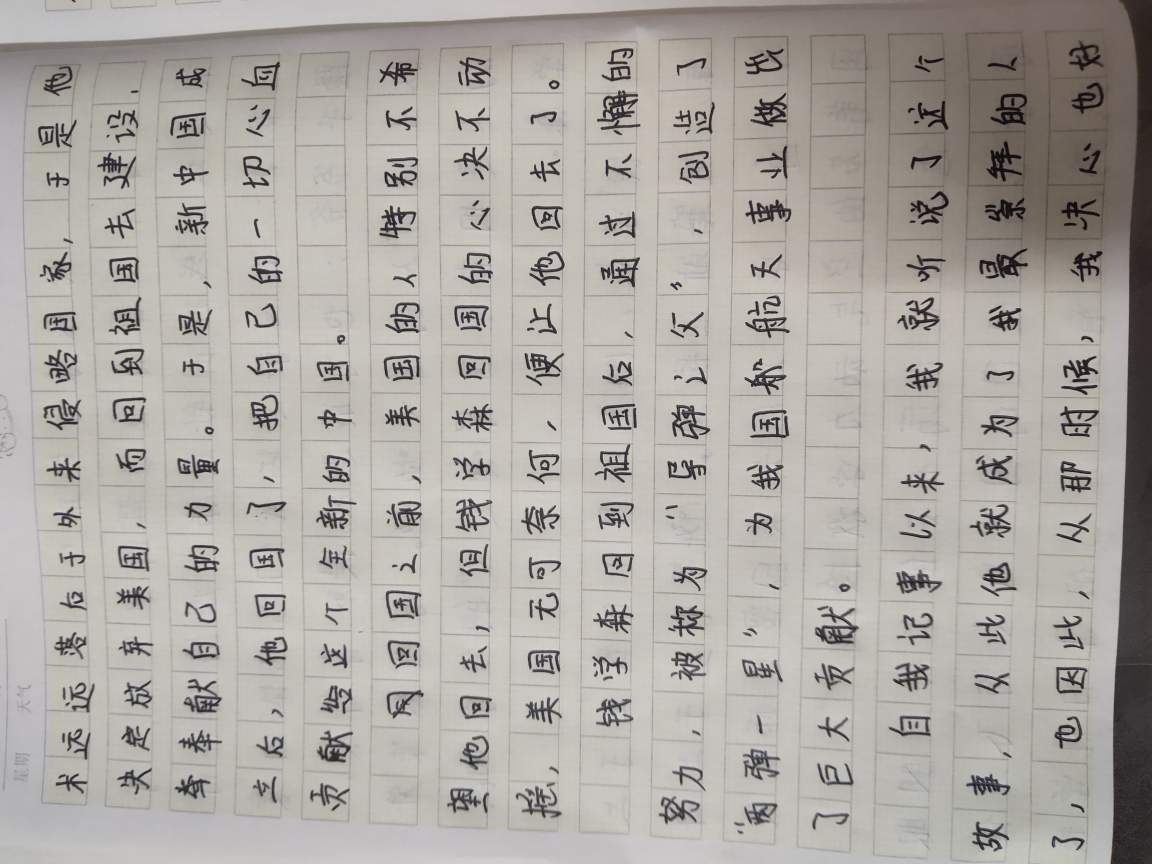 术远远落后于外来侵略国家,于是他
决定放弃美国,而回到祖国去建设,
奉献自己的力量。于是,新中国成
立后,他回国了,把自己的一切心血
贡献给这个全新的中国。
回国之前,美国的人特别不希
望他回去,但钱学森回国的心决不动
摇,美国无可奈何,便让他回去了。
钱学森回到祖国后,通过不懈的
努力,被称为“导弹之父”,创造了
“两弹一星”,为我国航天事业做出
了巨大贡献。
自我记事以来,我就听说了这个
故事,从此他就成为了我最崇拜的人
了,也因此,从那时候,我决心也好
星期 天气